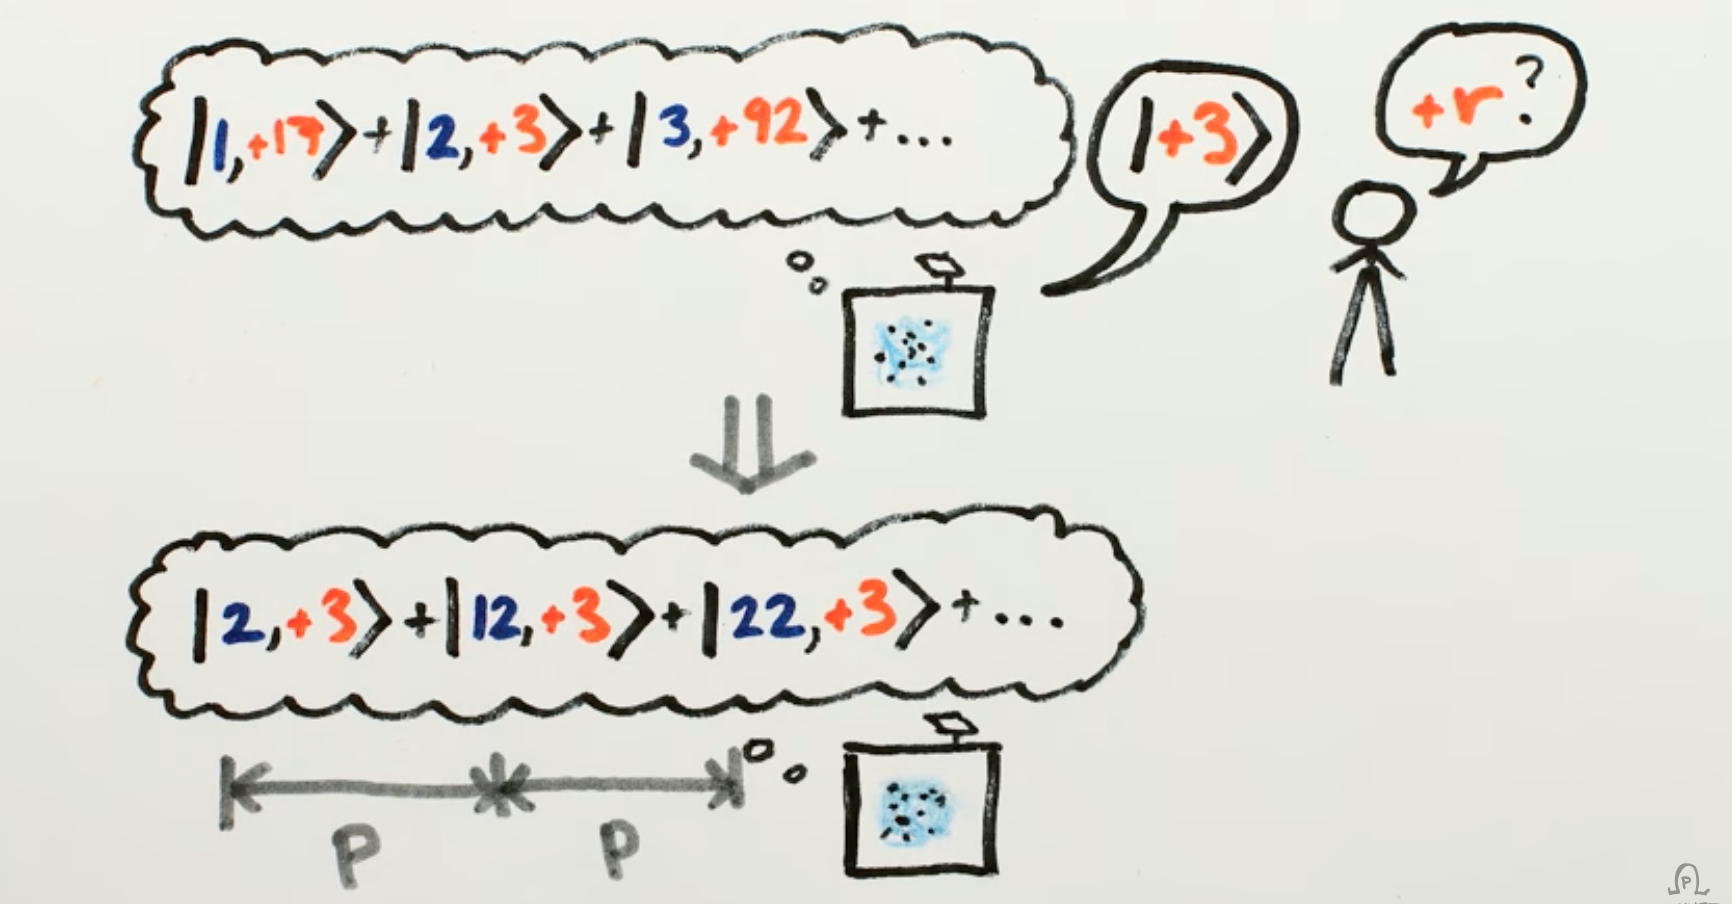 |1,+17⟩+|2,+3⟩+|3,+92⟩+...
|+3⟩
+r?
|2,+3⟩+|12,+3⟩+|22,+3⟩+...
P P
P